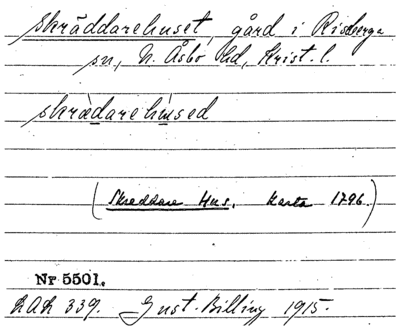 Skräddarehuset, gård i Risberga
sn, N. Åsbo hd, Krist. l.
skrädarehùsed
(Skreddare Hus. karta 1796.)
Nr 5501.
LAL 339. Gust. Billing 1915.